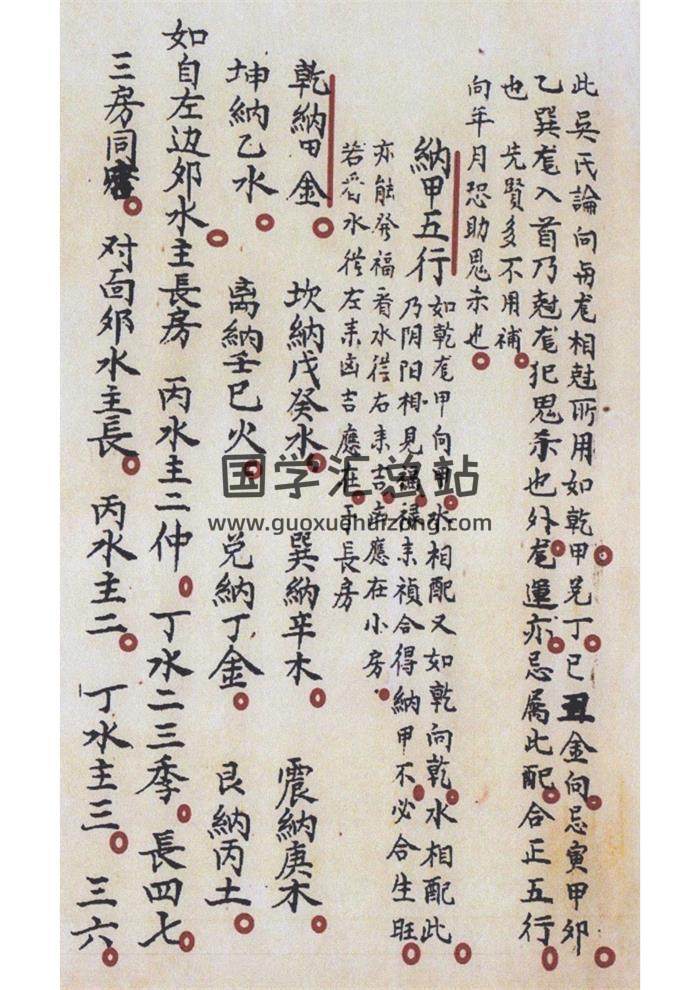 此吳氏論向与龙相尅所用如乾甲兑丁巳丑金向忌寅甲卯
乙巽龙入首乃尅龙犯鬼杀也外龙運亦忌属此配合正五行
也先賢多不用補
向年月恐助鬼杀也
納甲五行
如乾龙甲向甲水相配又如乾向乾水相配此
乃阴阳相見福禄来禎合得納甲不必合生旺
亦能發福看水從右来吉應在小房
若看水從左来凶吉應在長房
乾納甲金 坎納戊癸水 巽納辛木 震納庚木
坤納乙水 离納壬巳火 兑納丁金 艮納丙土
如自左边卯水主長房 丙水主二仲 丁水二三季 長四七
三房同 对面卯水主長 丙水主二 丁水主三 三六
国学汇总站
www.guoxuehuizong.com